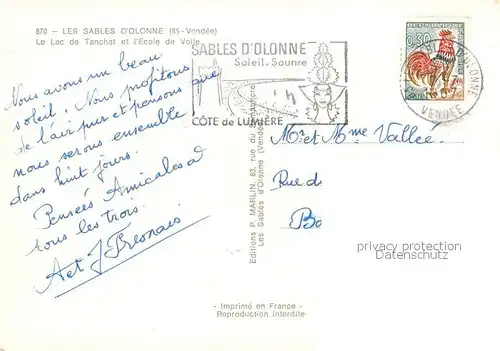 870 — LES SABLES D'OLONNE (85-Vendée)
Le Lac de Tanchat et l'Ecole de Voile
Nous avons un beau
soleil. Nous profitons
de l'air pur et pensons que
nous serons ensemble
dans huit jours.
Pensées Amicales à
tous les trois.
SABLES D'OLONNE
Soleil. Sourire
CÔTE de LUMIÈRE
0,30
VENDEE
Editions P. MARLIN, 83, rue du
Les Sables d'Olonne (Vendée)
Mr et Mme Vallée.
Rue d
Bo
privacy protection
Datenschutz
- Imprimé en France -
Reproduction interdite